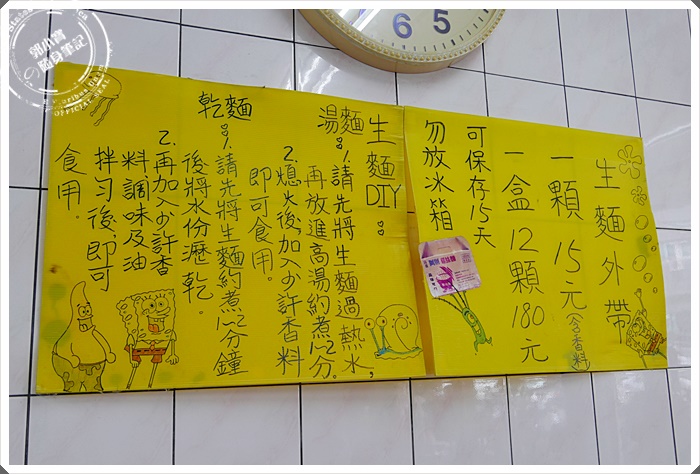 生麵外帶
一顆 15元(含香料)
一盒12顆180元
可保存15天
勿放冰箱
生麵DIY:
湯麵:1.請先將生麵過熱水,
再放進高湯約煮1~2分。
2.熄火後,加入少許香料
即可食用。
乾麵:1.請先將生麵約煮1~2分鐘
後將水份瀝乾。
2.再加入少許香
料,調味及油
拌勻後,即可
食用。
6
5
郭小寶
の
隨身筆記
OFFICIAL SEAL